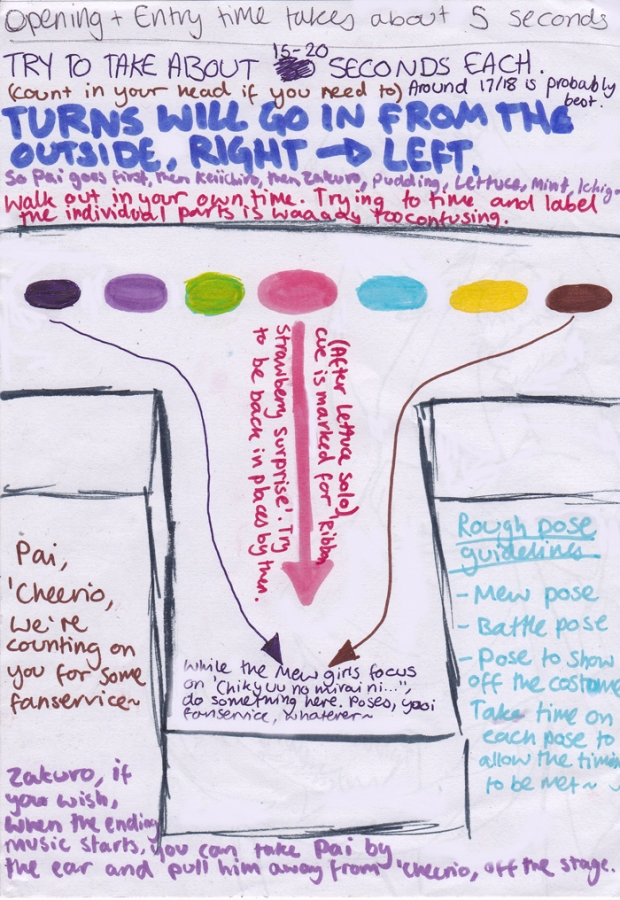 Opening + Entry time takes about 5 seconds
15-20
TRY TO TAKE ABOUT SECONDS EACH.
(count in your head if you need to) Around 17/18 is probably
best.
TURNS WILL GO IN FROM THE
OUTSIDE, RIGHT → LEFT.
So Pai goes first, then Keiichiro, then Zakuro, Pudding, Lettuce, Mint, Ichigo.
Walk out in your own time. Trying to time and label
the individual parts is waaaay too confusing.
(After Lettuce solo)
cue is marked for 'Ribbon
strawberry surprise'. Try
to be back in places by then.
Pai,
'Cheerio,
we're
counting on
you for some
fanservice~
Rough pose
guidelines
- Mew pose
- Battle pose
- Pose to show
off the costume
Take time on
each pose to
allow the timing
to be met~
While the Mew girls focus
on 'Chikyuu no mirai ni...",
do something here. Poses, yaoi
fanservice, whatever~
Zakuro, if
you wish,
when the ending
music starts, you can take Pai by
the ear and pull him away from 'Cheerio, off the stage.